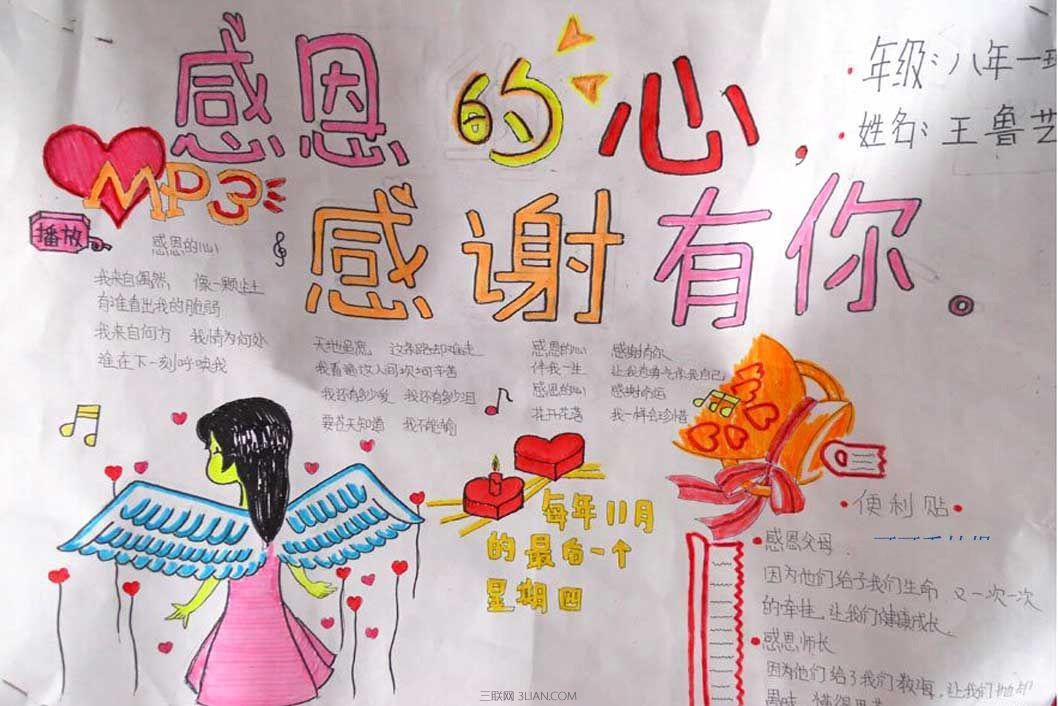 感恩的心，
感谢有你。
年级：八年一班
姓名：王鲁艺
MP3
播放
感恩的心
我来自偶然， 像一颗尘土
有谁看出我的脆弱
我来自何方 我情为何处
谁在下一刻呼唤我
天地虽宽 这条路却难走
我看遍这人间坎坷辛苦
我还有多少爱 我还有多少泪
要苍天知道 我不能输
感恩的心 感谢有你
伴我一生 让我有勇气作我自己
感恩的心 感谢命运
花开花落 我一样会珍惜
每年11月
的最后一个
星期四
便利贴
感恩父母
因为他们给予我们生命 又一次一次
的牵挂，让我们健康成长。
感恩师长
因为他们给了我们教诲，让我们抛却
愚昧，懂得思考
三联网 3LIAN.COM